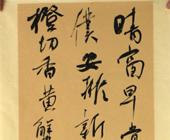 晴窗早觉
僕安排新
橙切香黄蟹